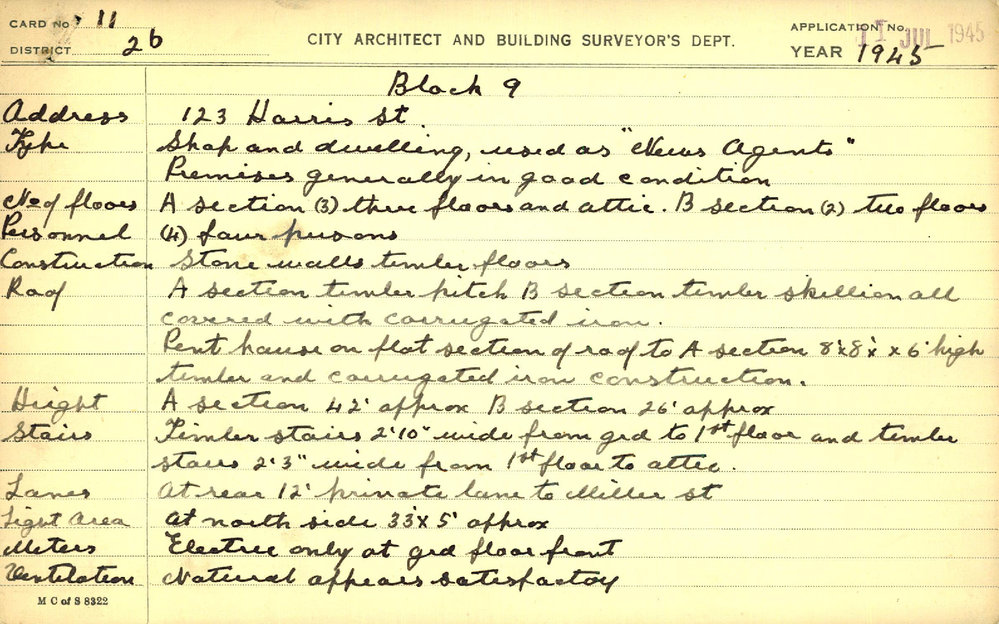 CARD No. 11
DISTRICT 26
CITY ARCHITECT AND BUILDING SURVEYOR'S DEPT.
APPLICATION No.
11 JUL 1945
YEAR 1945
Block 9
Address 123 Harris St.
Type Shop and dwelling, used as "News Agents"
Premises generally in good condition
No of floors A section (3) three floors and attic. B section (2) two floors
Personnel (4) four persons
Construction Stone walls timber floors
Roof A section timber pitch B section timber skillion all
covered with corrugated iron.
Pent house on flat section of roof to A section 8'x8'x 6' high
timber and corrugated iron construction.
Height A section 42' approx B section 26' approx
Stairs Timber stairs 2'10" wide from grd to 1st floor and timber
stairs 2'3" wide from 1st floor to attic.
Lanes At rear 12' private lane to Miller st
Light Area At north side 33'x 5' approx
Meters Electric only at grd floor front
Ventilation Natural appears satisfactory
M C of S 8322